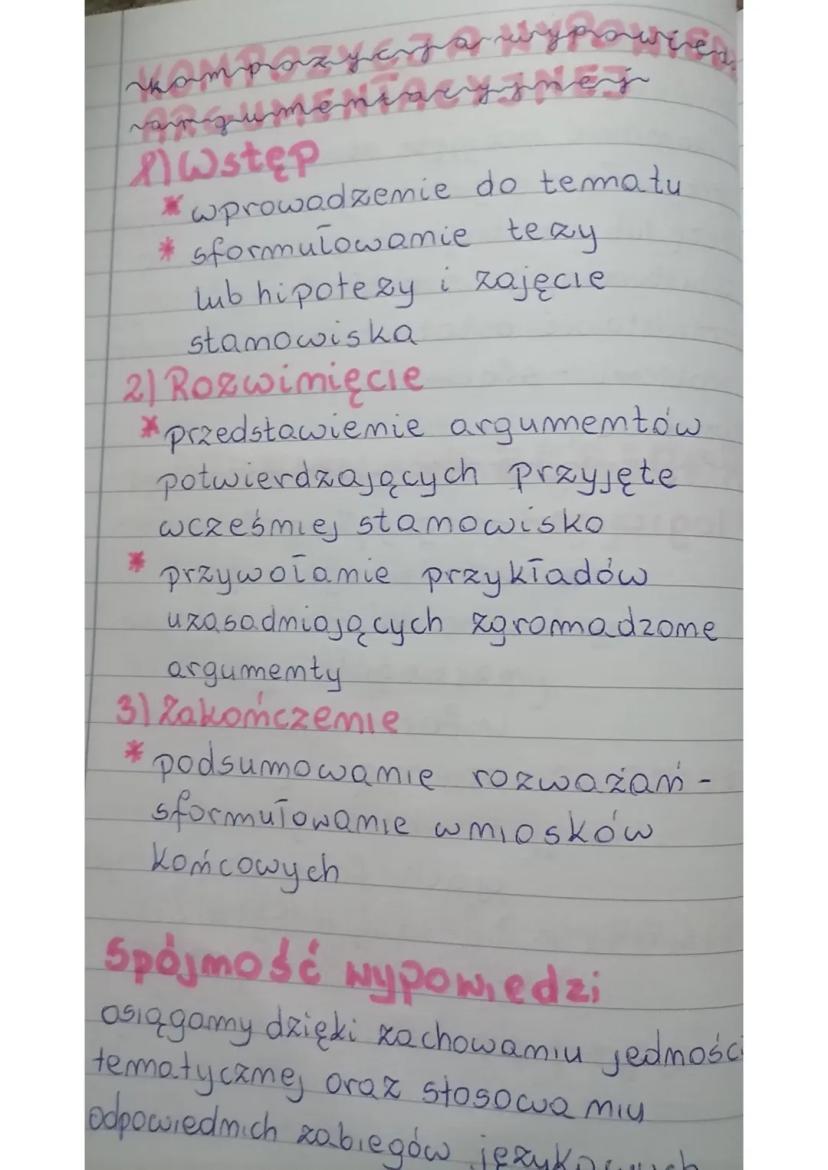 Kompozycja wypowied
argumentacyjnej
1) Wstęp
* wprowadzenie do tematu
* sformułowanie tezy
lub hipotezy i zajęcie
stanowiska
2) Rozwinięcie
* przedstawienie argumentów
potwierdzających przyjęte
wcześniej stanowisko
* przywołanie przykładów
uzasadniających zgromadzone
argumenty
3) Zakończenie
* podsumowanie rozważań -
sformułowanie wniosków
końcowych
Spójność wypowiedzi
osiągamy dzięki zachowaniu jedności
tematycznej oraz stosowaniu
odpowiednich zabiegów językowych